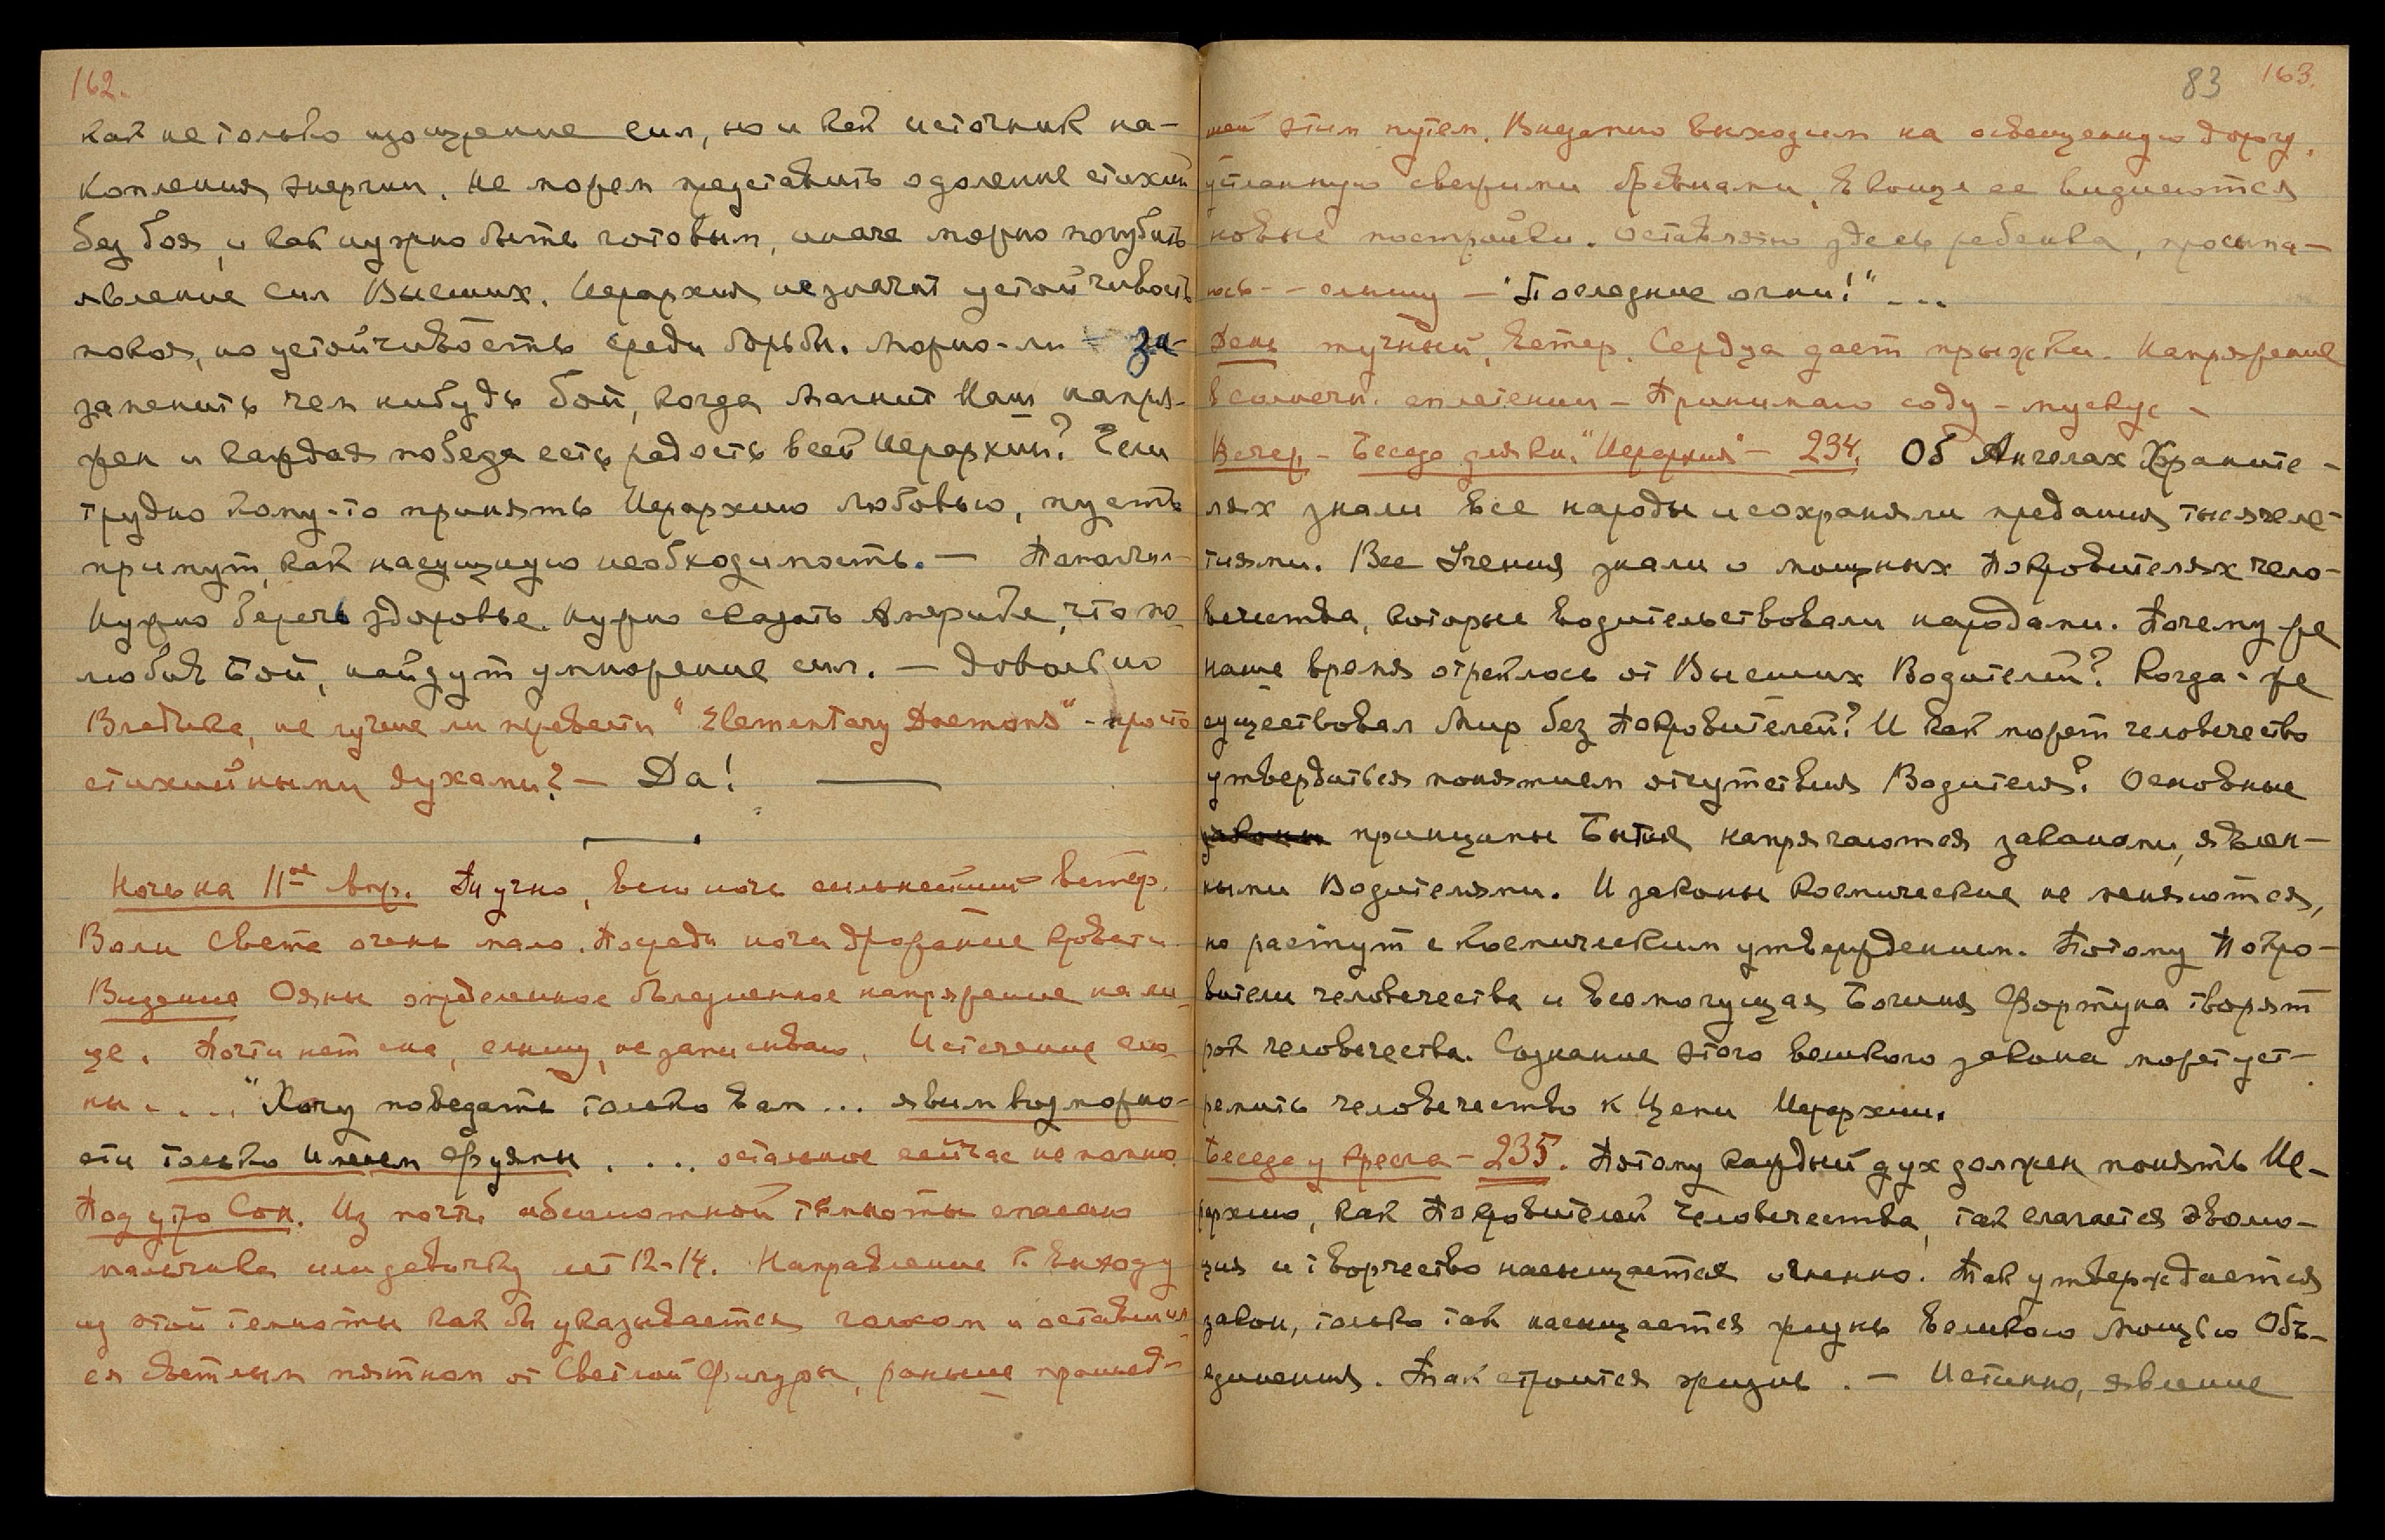 162.
как не только изощрение сил, но и как источник на-
копления энергии. Неможем представить одоление стихий
без боя, и как нужно быть готовым, иначе можно погубить
явление сил Высших. Иерархия не значит устойчивость
покоя, но устойчивость среди борьбы. Можно-ли за-
заменить чем нибудь бой, когда Магнит Наш напря-
жен и каждая победа есть радость всей Иерархии? Если
трудно кому-то принять Иерархию любовью, пусть
примут, как насущную необходимость. —
Нужно беречь здоровье. Нужно сказать Америке, что по-
любив Бой, найдут умножение сил. — Довольно
Владыка, не лучше ли перевести "Elementary Daemons" - просто
стихийными духами? — Да! —
Ночь на 11ое апр. Душно, всю ночь сильнейший ветер.
Волн света очень мало. Посреди ночи дрожание кровати
Видение Ояны определенное болезненное напряжение на ли-
це. Почти нет сна, слышу, не записываю. Истечение слю-
ны .... "Хочу поведать только вам ... явим возможно-
сти только Именем Фуямы .... остальное сейчас не помню
Под утро Сон. Из почти абсолютной темноты спасаю
мальчика или девочку лет 12-14. Направление к выходу
из этой темноты как бы указывается голосом и оставшим-
ся светлым пятном от Светлой Фигуры, раньше прошед-
83 163.
шей этим путем. Внезапно выходим на освещенную дорогу,
устланную свежими бревнами, в конце ее виднеются
новые постройки. Оставляю здесь ребенка, просыпа-
юсь - - слышу — "Последние огни!" ...
День тучный, ветер. Сердце дает прыжки. Напряжение
в солнечн. сплетении — Принимаю соду - мускус —
Вечер - Беседа для кн. "Иерархия" — 234. Об Ангелах Храните-
лях знали все народы и сохраняли предания тысячеле-
тиями. Все Учения знали о мощных Покровителях чело-
вечества, которые водительствовали народами. Почему же
наше время отреклось от Высших Водителей? Когда-же
существовал Мир без Покровителей? И как может человечество
утвердиться понятием отсутствия Водителя? Основные
законы принципы Бытия напрягаются законами, явлен-
ными Водителями. И законы космические не меняются,
но растут с космическим утверждением. Потому Покро-
вители человечества и Всемогущая Богиня Фортуна творят
рок человечества. Сознание этого великого закона может уст-
ремить человечество к Цепи Иерархии.
Беседа у кресла — 235. Потому каждый дух должен понять Ие-
рархию, как Покровителей человечества, так слагается эволю-
ция и творчество насыщается огненно. Так утверждается
закон, только так насыщается жизнь великою мощью Объ-
единения. Так строится жизнь. — Истинно, явление